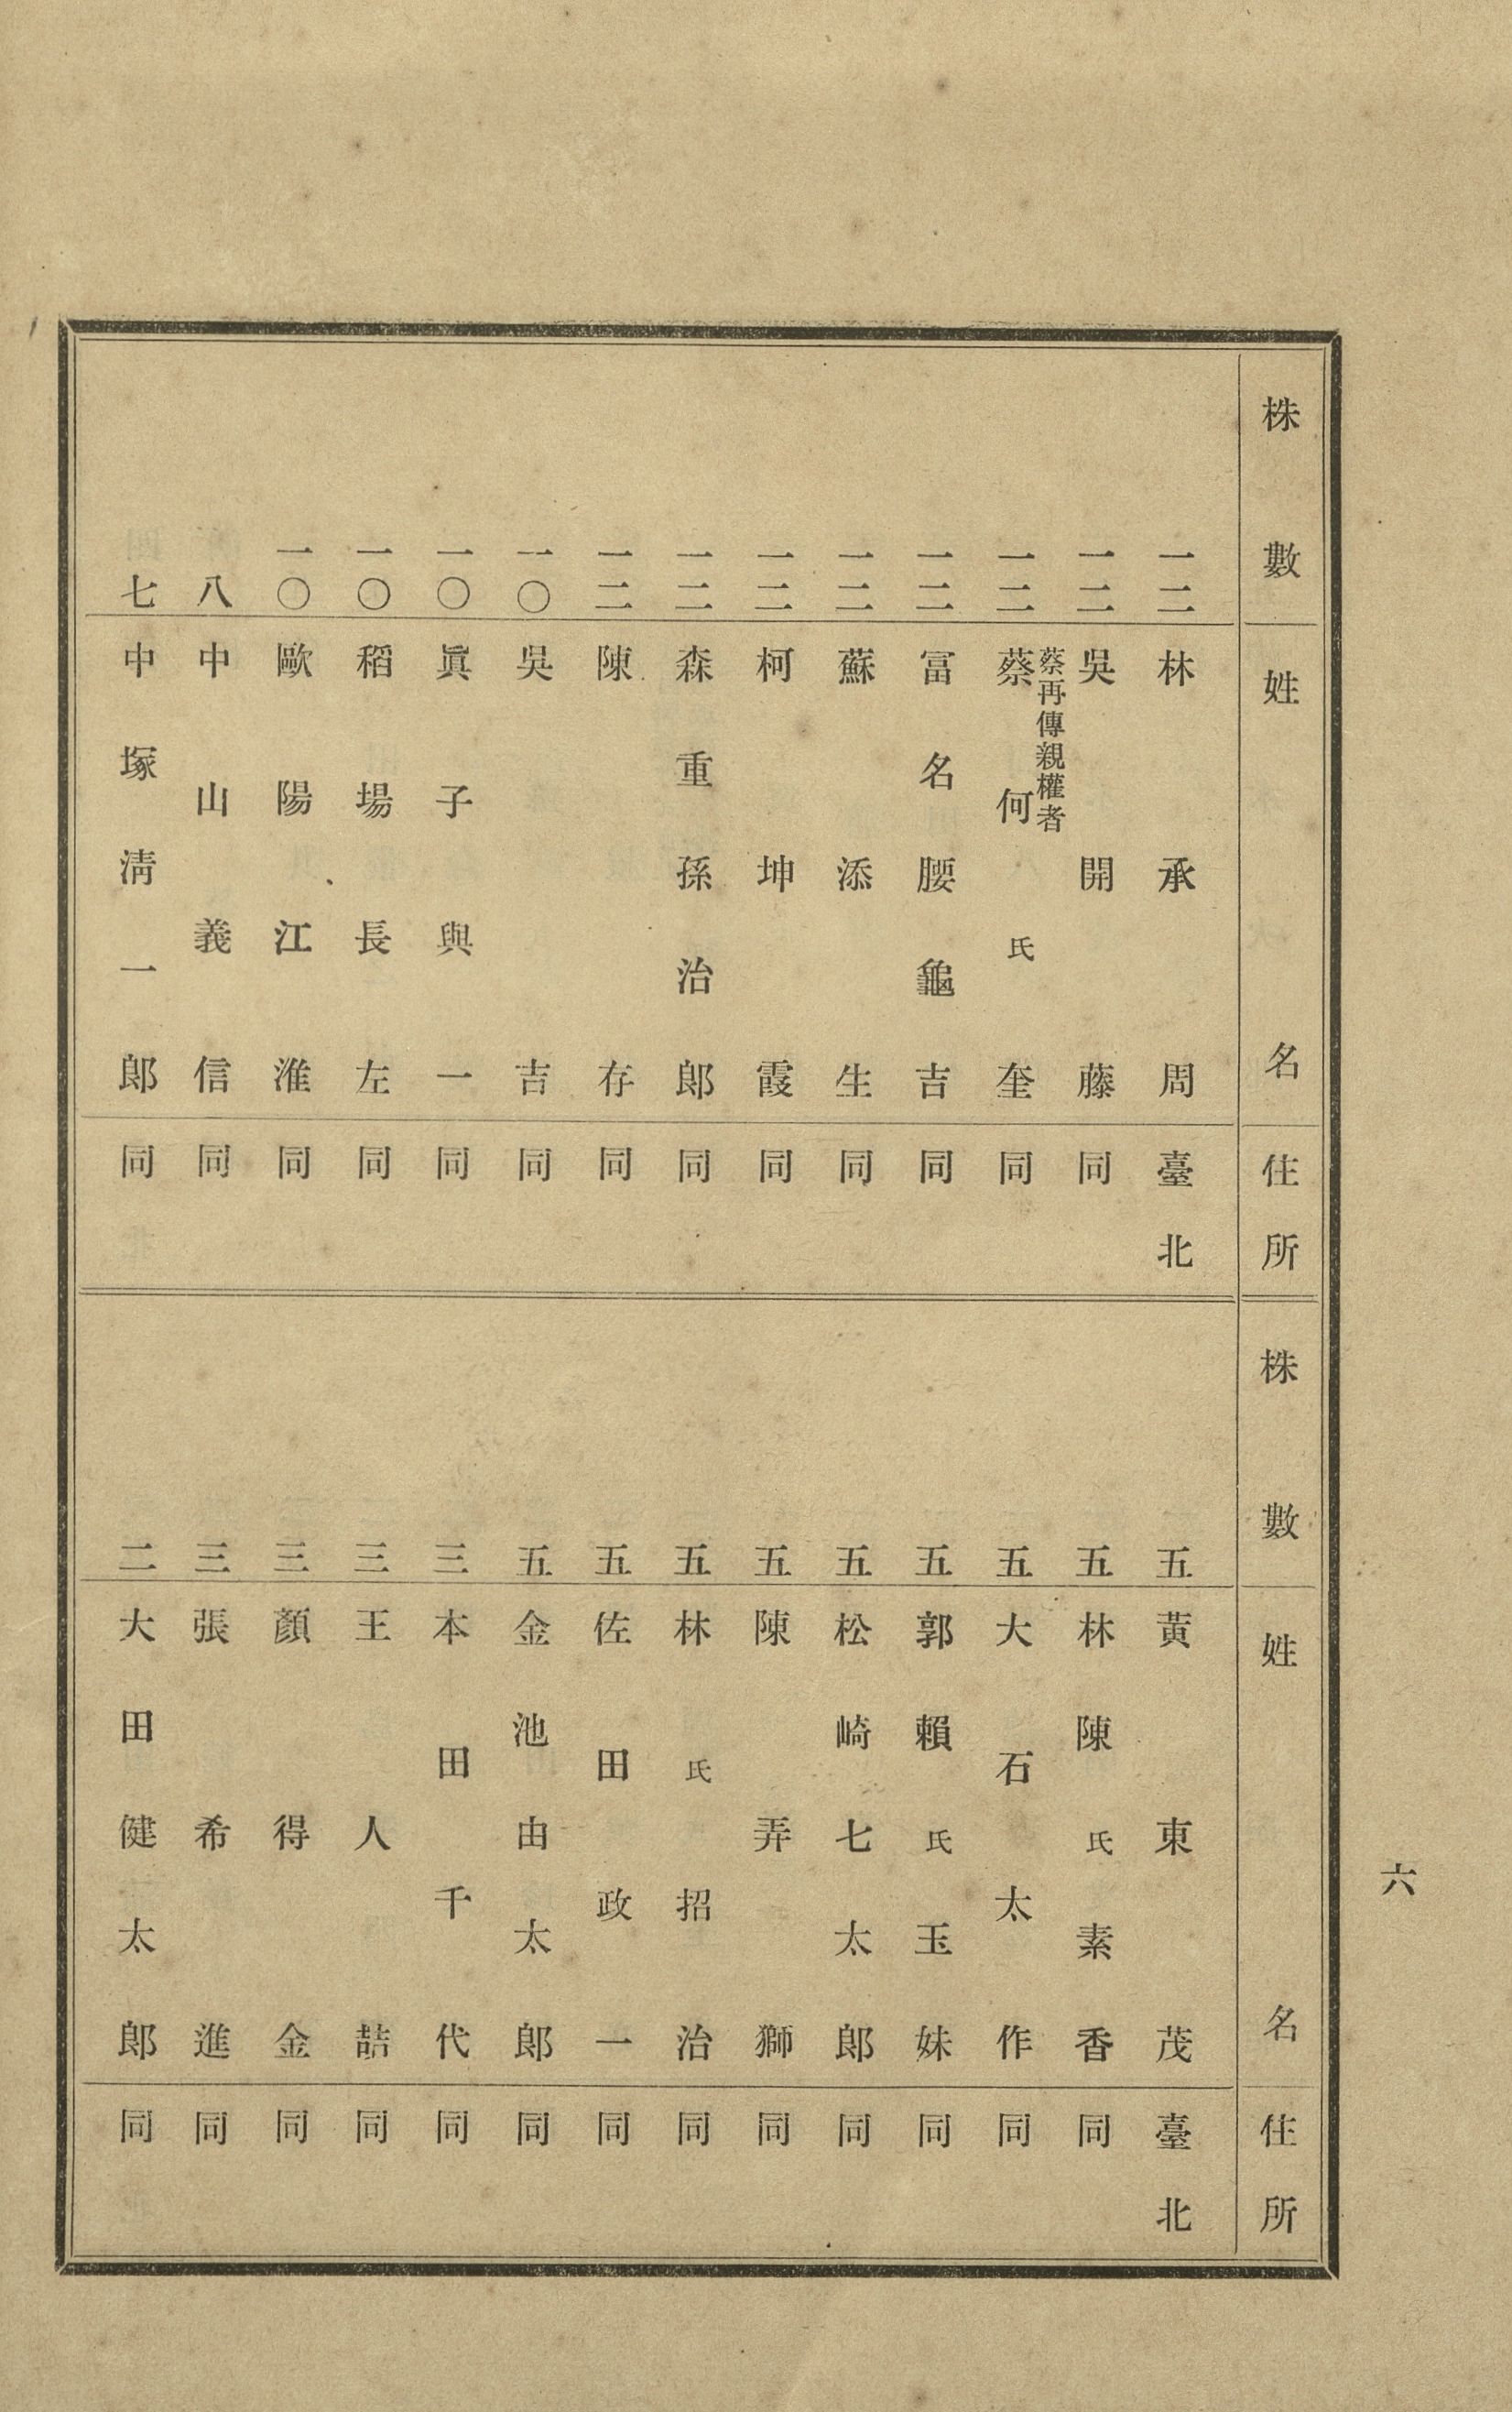 六
株數 姓名 住所
一二 林承周 臺北
一二 吳開藤 同
一二 蔡再傳親權者 蔡何氏奎 同
一二 富名腰龜吉 同
一二 蘇添生 同
一二 柯坤霞 同
一二 森重孫治郎 同
一二 陳存 同
一〇 吳吉 同
一〇 眞子與一 同
一〇 稻場長左 同
一〇 歐陽江淮 同
八 中山義信 同
七 中塚淸一郎 同
株數 姓名 住所
五 黃東茂 臺北
五 林陳氏素香 同
五 大石太作 同
五 郭賴氏玉妹 同
五 松崎七太郎 同
五 陳弄獅 同
五 林氏招治 同
五 佐田政一 同
五 金池由太郎 同
三 本田千代 同
三 王人喆 同
三 顏得金 同
三 張希進 同
二 大田健太郎 同